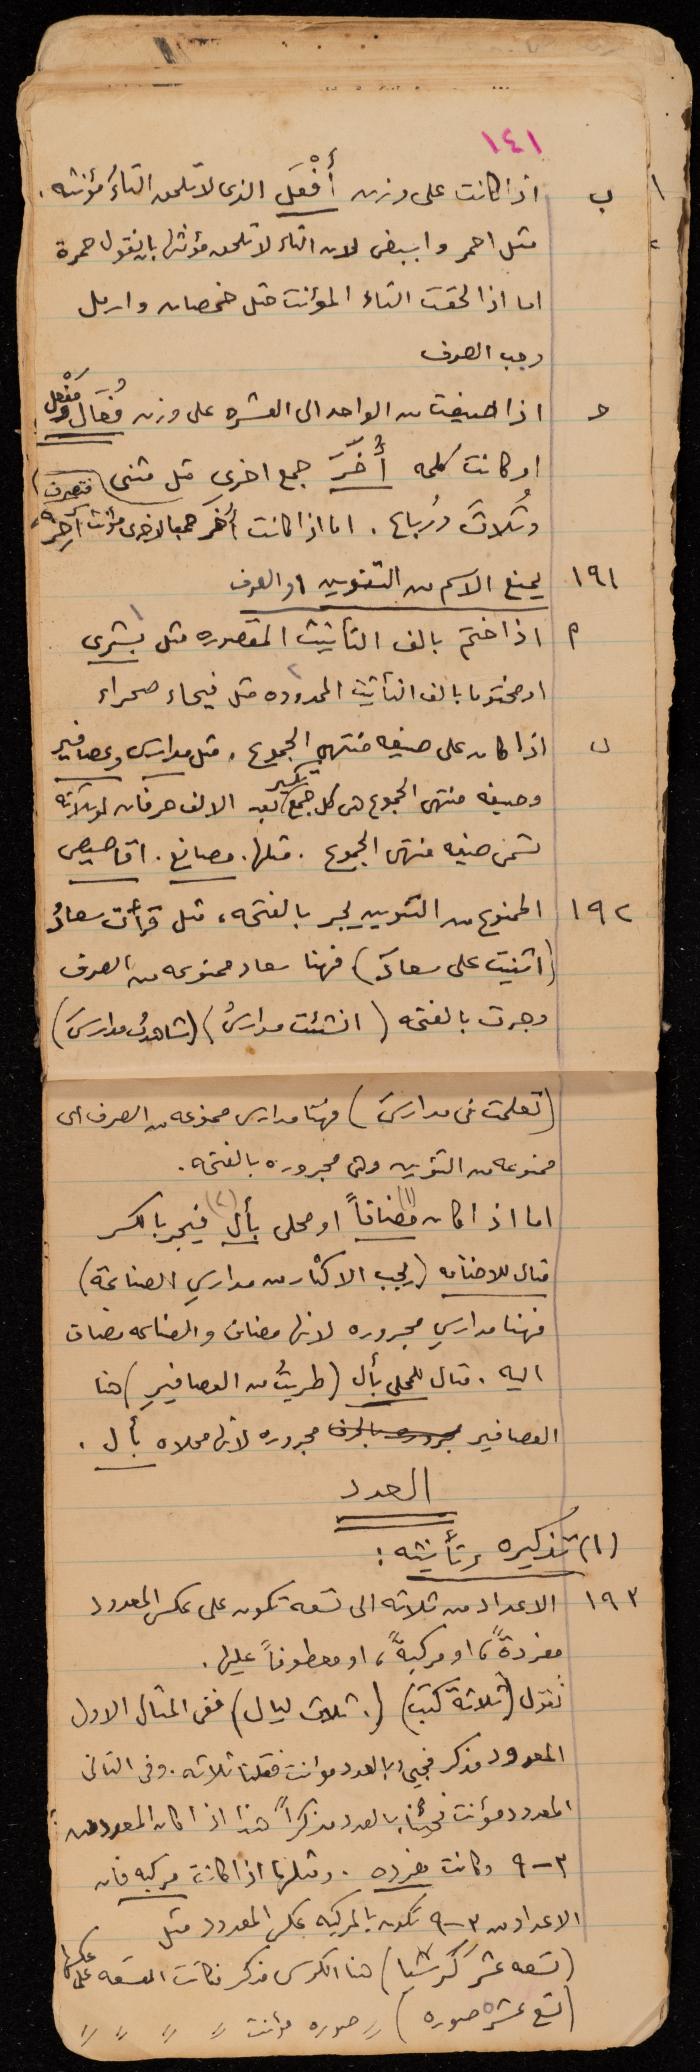 ١٤١
ب اذا كانت على وزن أَفْعَل الذى لا تلحق التاءُ مؤنثه .
مثل احمر وابيض لان التاء لا تلحق مؤنثها بان نقول حمرة
اما اذا لحقت التاء المؤنث مثل خمصان وارمل
وجب الصرف
حـ اذا صيغت من الواحد الى العشره على وزن فُعَال ومَفْعل
او كانت كلمه أُخَرَ جمع اخرى مثل مثنى
وثُلاثَ ورُباع . اما اذا كانت أُخَر جمعا لاخرى مؤنث آخِر فتصرف
١٩١ يمنع الاسم من التنوين او الصرف
٩ اذا ختم بالف التأنيث المقصوره مثل بشرى
او مختوما بالف التأنيث الممدوده مثل فيحاء صحراء
ب اذا كان على صيغه منتهى الجموع . مثل مدارس وعصافير
وصيغه منتهى الجموع هى كل جمع تكسير بعد الالف حرفان او ثلاثه
تسمى صيغه منتهى الجموع . مثلها . مصانع . اقاصيص
١٩٢ الممنوع من التنوين يجر بالفتحه ، مثل قرأت سعادُ
(اثنيت على سعادَ) فهنا سعاد ممنوعه من الصرف
وجرت بالفتحه (انشئت مدارسُ) (شاهدتُ مدارسَ)
(تعلمت فى مدارسَ) فهنا مدارس ممنوعه من الصرف اى
ممنوعه من التنوين وهى مجروره بالفتحه .
اما اذا كان مضافاً (١) او محلى بأل (٢) فيجر بالكسر
مثال للاضافه (يجب الاكثار من مدارسِ الصناعة)
فهنا مدارسِ مجروره لانها مضاف والصناعه مضاف
اليه . مثال للمحلى بأل (طربتُ من العصافيرِ) هنا
العصافير مجروره بالحرف مجروره لانها محلاه بأل .
العدد
(١) تذكيره وتأنيثه :
١٩٣ الاعداد من ثلاثه الى تسعه تكون على عكس المعدود
مفردةً ، او مركبةً ، او معطوفاً عليها .
نقول (ثلاثة كتب) (. ثلاث ليال) ففى المثال الاول
المعدود مذكر فجيء بالعدد مؤنث فقلنا ثلاثه . وفى الثانى
المعدود مؤنث فجئنا بالعدد مذكراً هذا اذا كان المعدود من
٣ – ٩ وكانت مفرده . ومثلها اذا كانت مركبه فان
الاعداد من ٣ – ٩ تكون بالمركبه عكس المعدود مثل
(تسعه عشَر كرسيا) هنا الكرسى مذكر فكانت التسعه على عكسها
(تسع عشره صوره) 〃 صوره مؤنث 〃 〃 〃 〃